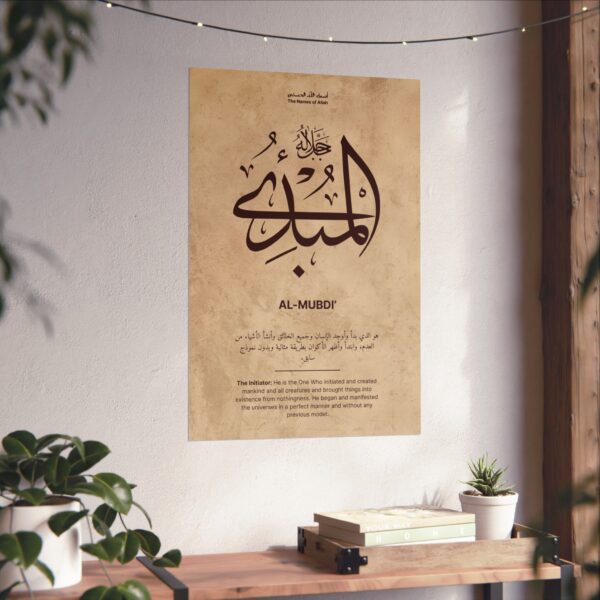 أسماء الله الحسنى
The Names of Allah
جل جلاله
المبدئ
AL-MUBDI'
هو الذي بدأ وأوجد الإنسان وجميع الخلائق وأنشأ الأشياء من
العدم، وابتدأ وأظهر الأكوان بطريقة مثالية وبدون نموذج
سابق.
The Initiator: He is the One Who initiated and created
mankind and all creatures and brought things into
existence from nothingness. He began and manifested
the universes in a perfect manner and without any
previous model.
HOME